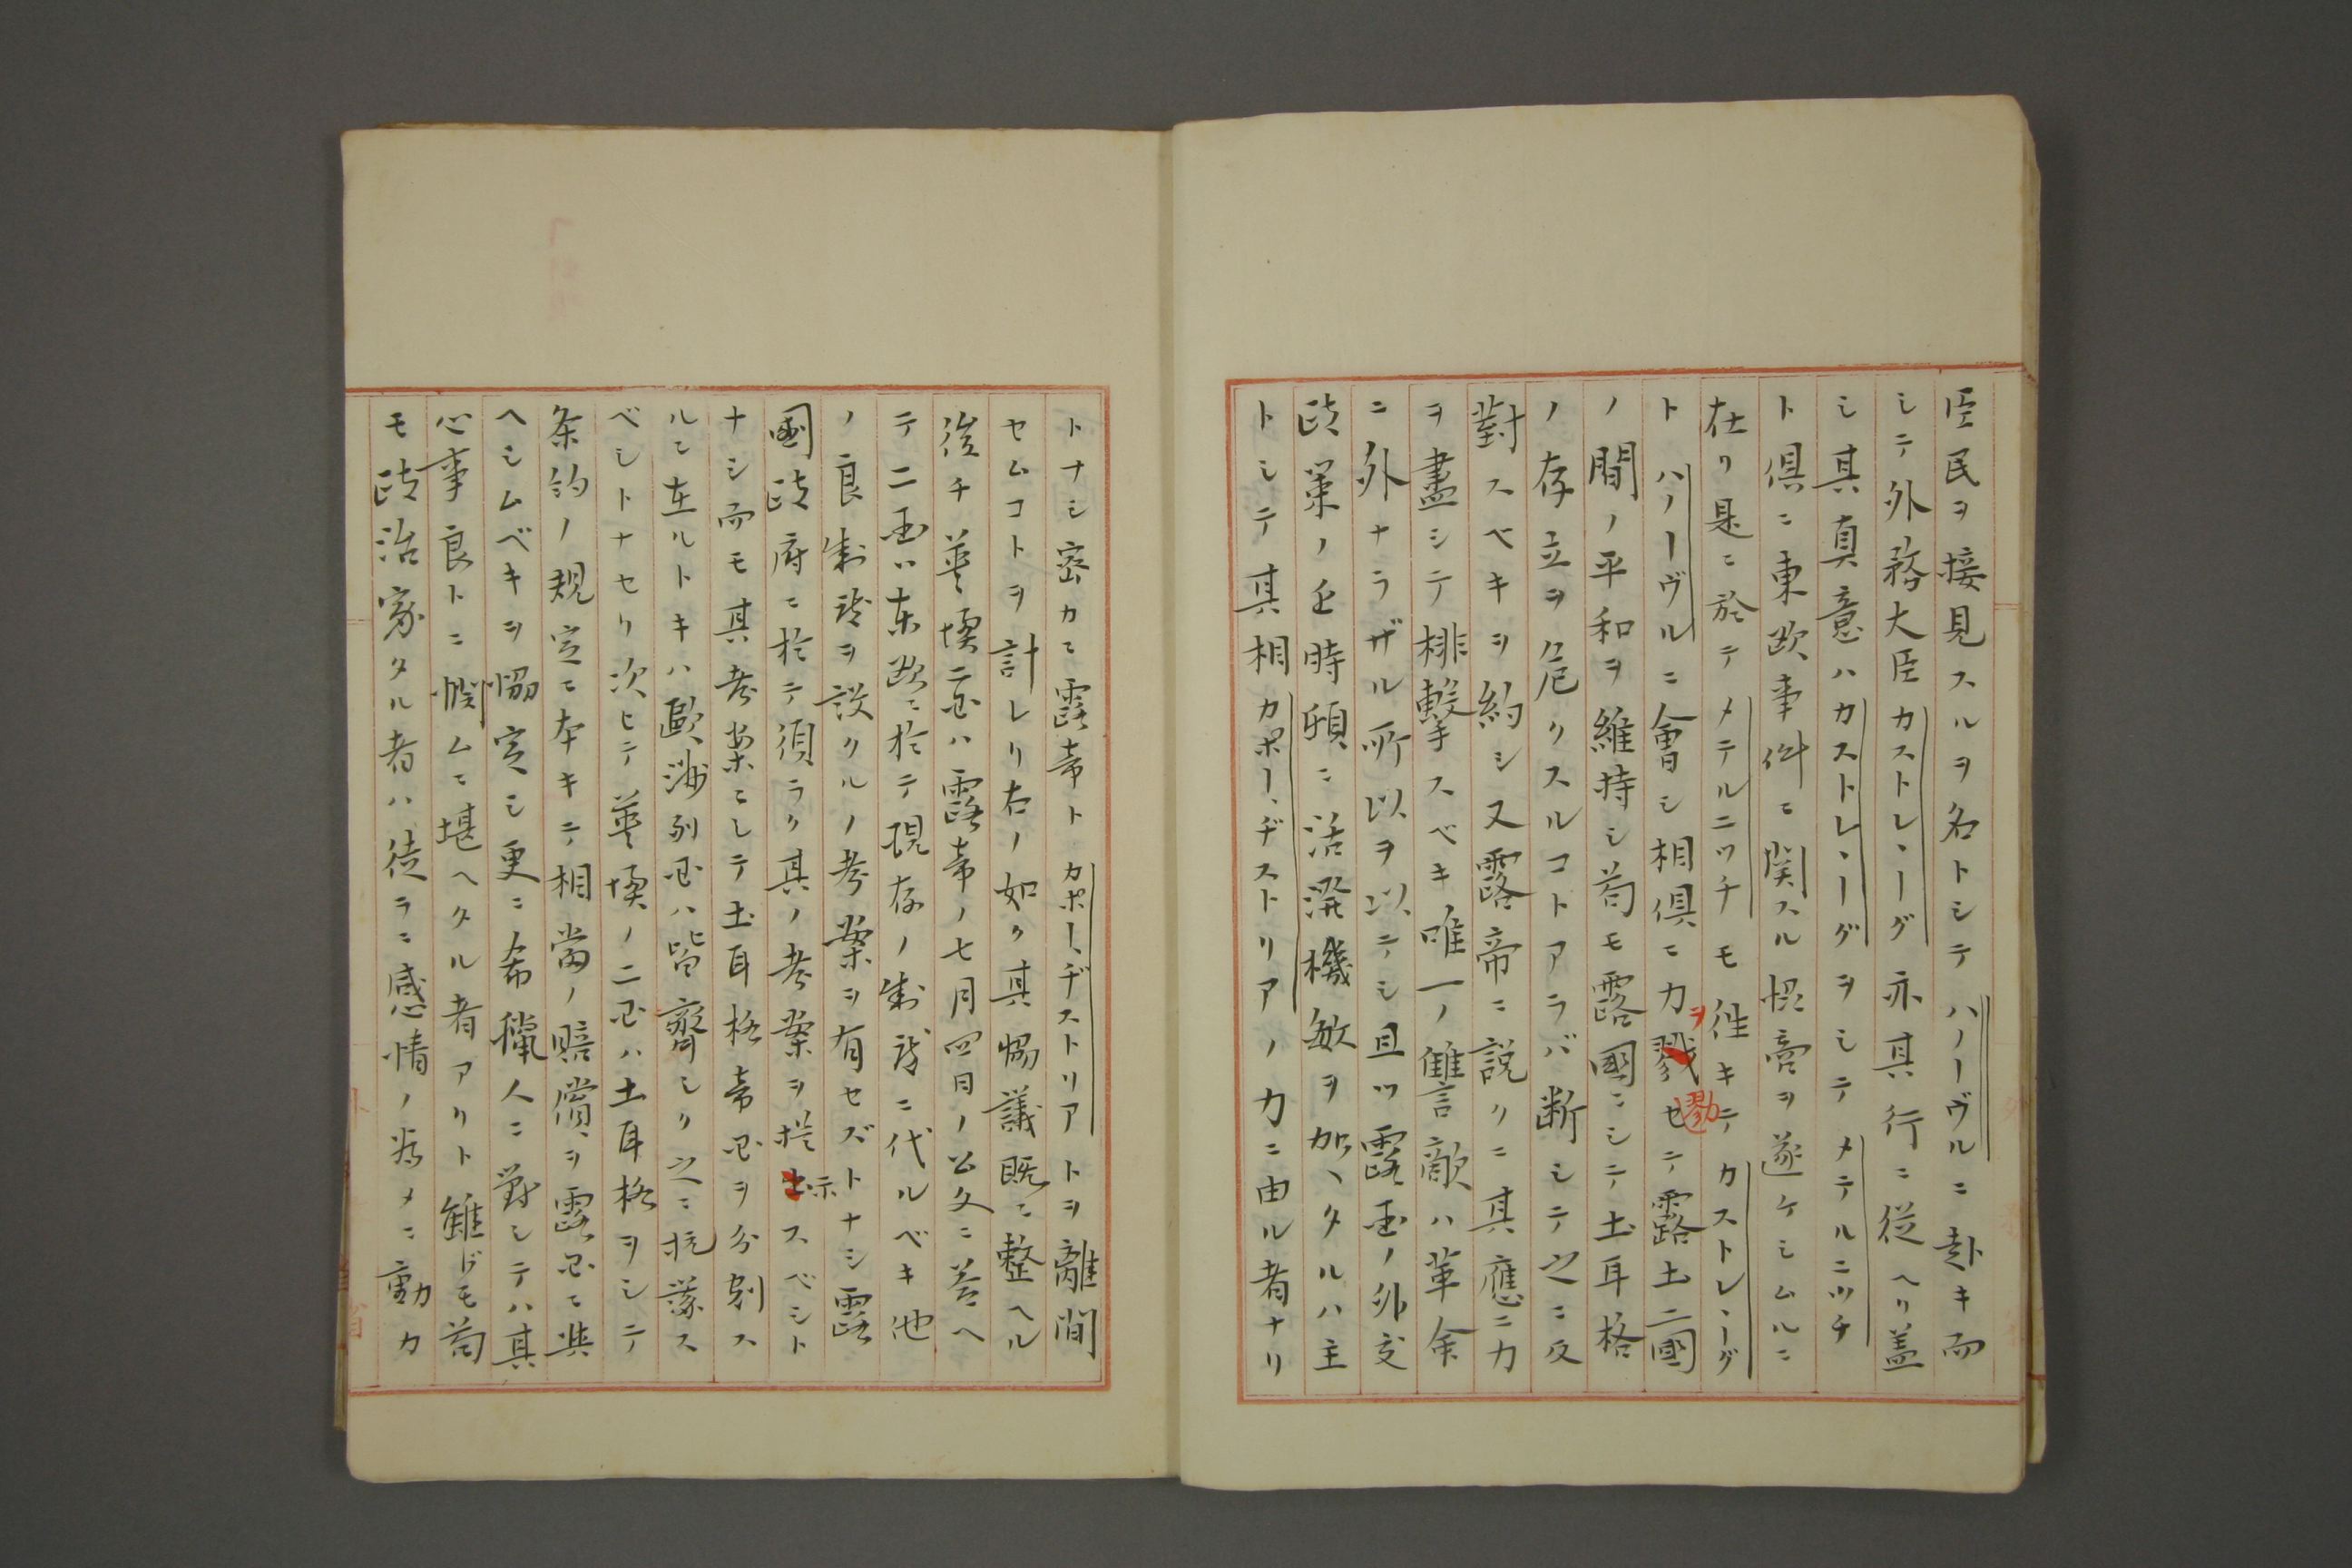 臣民ヲ接見スルヲ名トシテハノーヴルニ赴キ而
シテ外務大臣カストレ、ーグ亦其行ニ従ヘリ蓋
シ其真意ハカストレ、ーグヲシテメテルニッチ
ト倶ニ東欧事件ニ関スル協商ヲ遂ケシムルニ
在リ是ニ於テメテルニッチモ徃キテカストレ、ーグ
トハノーヴルニ會シ相倶ニ力ヲ戮勠セテ露土二國
ノ間ノ平和ヲ維持シ苟モ露國ニシテ土耳格
ノ存立ヲ危クスルコトアラバ断シテ之ニ反
對スベキヲ約シ又露帝ニ説クニ其應ニ力
ヲ盡シテ排撃スベキ唯一ノ讎敵ハ革命
ニ外ナラザル所以ヲ以テシ且ツ露国ノ外交
政策ノ近時頓ニ活溌機敏ヲ加ヘタルハ主
トシテ其相カポー、ヂストリアノ力ニ由ル者ナリ
トナシ密カニ露帝トカポー、ヂストリアトヲ離間
セムコトヲ計レリ右ノ如ク其協議既ニ整ヘル
後チ英墺二国ハ露帝ノ七月四日ノ公文ニ答ヘ
テ二国ハ東欧ニ於テ現存ノ制度ニ代ルベキ他
ノ良制度ヲ設クルノ考案ヲ有セズトナシ露
國政府ニ於テ須ラク其ノ考案ヲ提出示スベシト
ナシ而モ其考案ニシテ土耳格帝国ヲ分割ス
ルニ在ルトキハ歐洲列国ハ皆齊シク之ニ抗議ス
ベシトナセリ次ヒテ英墺ノ二国ハ土耳格ヲシテ
条約ノ規定ニ本キテ相当ノ賠償ヲ露国ニ與
ヘシムベキヲ協定シ更ニ希臘人ニ對シテハ其
心事良トニ憫ムニ堪ヘタル者アリト雖ドモ苟
モ政治家タル者ハ徒ラニ感情ノ為メニ動カ